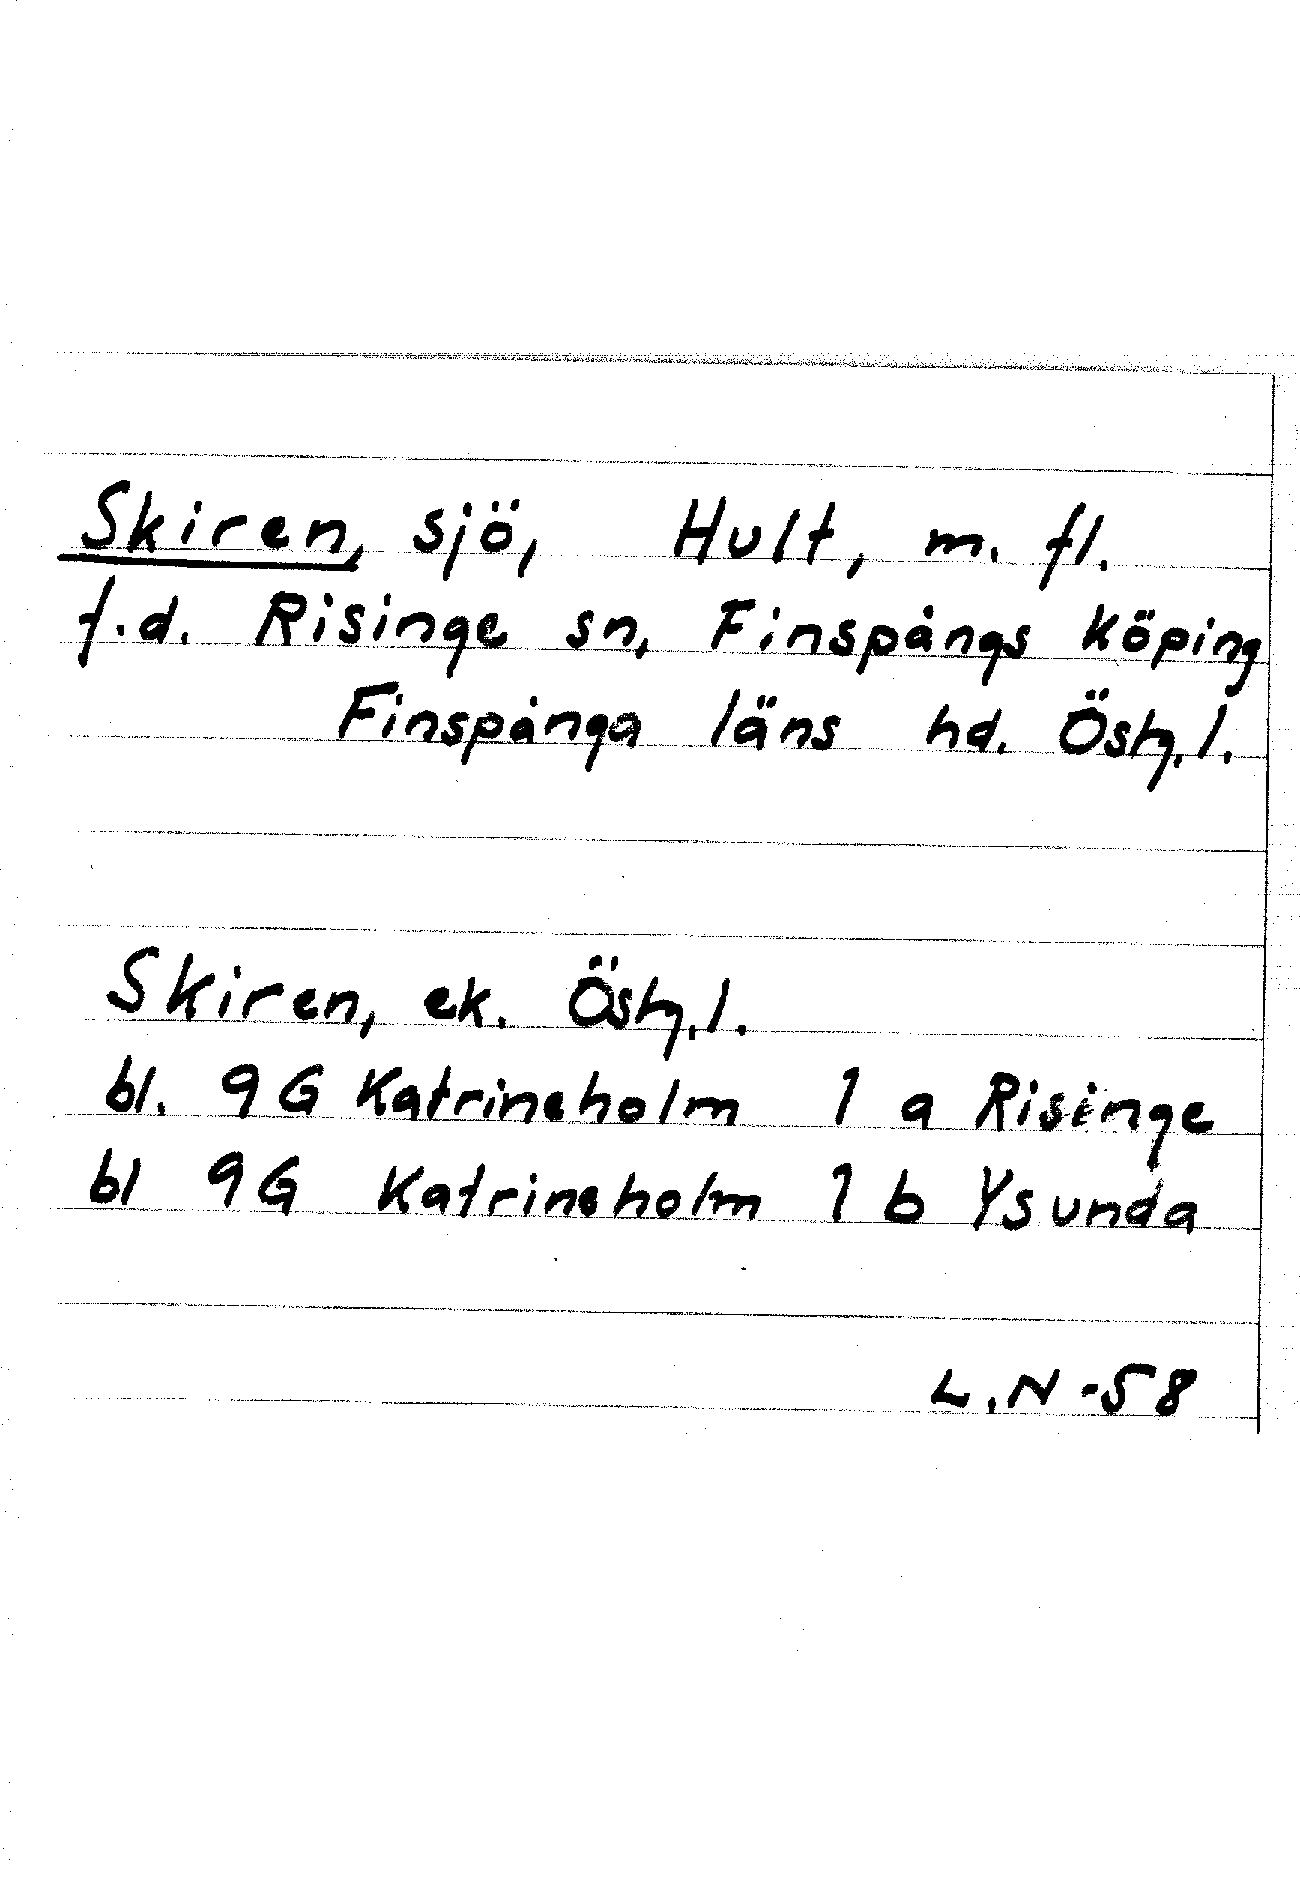 Skiren, sjö, Hult, m. fl.
f.d. Risinge sn, Finspångs köping
Finspånga läns hd. Östg. l.
Skiren, ek. Östg. l.
bl. 9G Katrineholm 1 a Risinge
bl 9G Katrineholm 1 b Ysunda
L.N-58